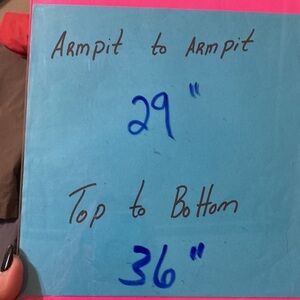 Armpit to Armpit
29"
Top to Bottom
36"